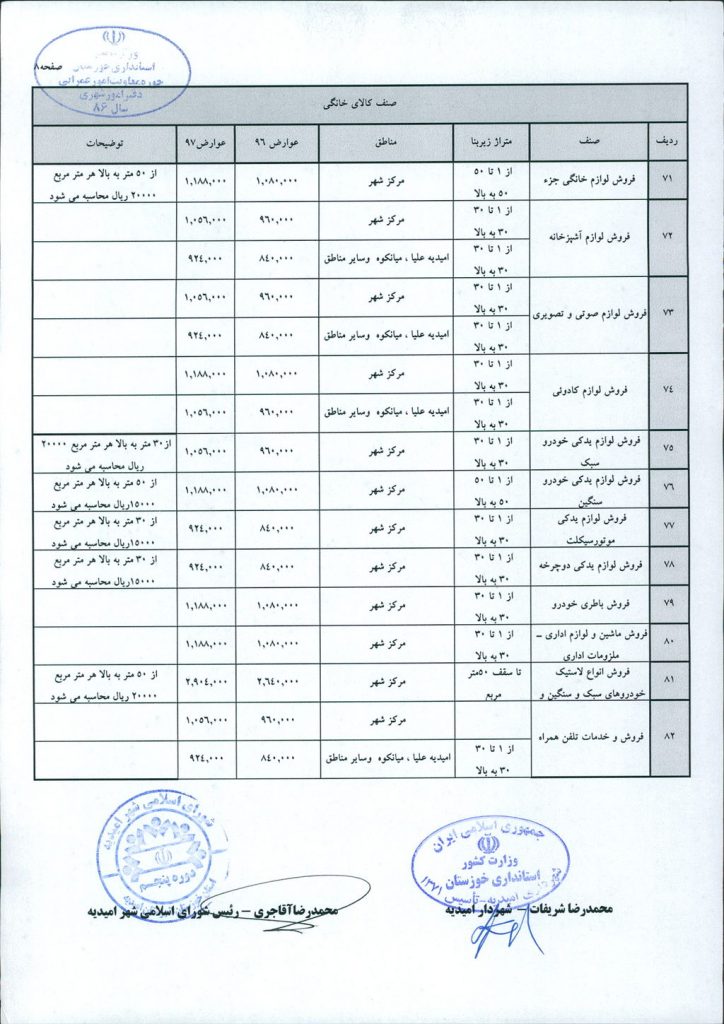 استانداری خوزستان
حوزه معاونت امور عمرانی
دفتر امور شهری
سال ۸۶
صفحه۸
صنف کالای خانگی
ردیف صنف متراژ زیربنا مناطق عوارض ۹۶ عوارض۹۷ توضیحات
۷۱ فروش لوازم خانگی جزء از ۱ تا ۵۰ مرکز شهر ۱,۰۸۰,۰۰۰ ۱,۱۸۸,۰۰۰ از ۵۰ متر به بالا هر متر مربع
۵۰ به بالا ۲۰۰۰۰ ریال محاسبه می شود
۷۲ فروش لوازم آشپزخانه از ۱ تا ۳۰ مرکز شهر ۹۶۰,۰۰۰ ۱,۰۵۶,۰۰۰
۳۰ به بالا
از ۱ تا ۳۰ امیدیه علیا ، میانکوه وسایر مناطق ۸٤۰,۰۰۰ ۹۲٤,۰۰۰
۳۰ به بالا
۷۳ فروش لوازم صوتی و تصویری از ۱ تا ۳۰ مرکز شهر ۹۶۰,۰۰۰ ۱,۰۵۶,۰۰۰
۳۰ به بالا
از ۱ تا ۳۰ امیدیه علیا ، میانکوه وسایر مناطق ۸٤۰,۰۰۰ ۹۲٤,۰۰۰
۳۰ به بالا
۷٤ فروش لوازم کادوئی از ۱ تا ۳۰ مرکز شهر ۱,۰۸۰,۰۰۰ ۱,۱۸۸,۰۰۰
۳۰ به بالا
از ۱ تا ۳۰ امیدیه علیا ، میانکوه وسایر مناطق ۹۶۰,۰۰۰ ۱,۰۵۶,۰۰۰
۳۰ به بالا
۷۵ فروش لوازم یدکی خودرو از ۱ تا ۳۰ مرکز شهر ۹۶۰,۰۰۰ ۱,۰۵۶,۰۰۰ از۳۰ متر به بالا هر متر مربع ۲۰۰۰۰
سبک ۳۰ به بالا ریال محاسبه می شود
۷۶ فروش لوازم یدکی خودرو از ۱ تا ۵۰ مرکز شهر ۱,۰۸۰,۰۰۰ ۱,۱۸۸,۰۰۰ از ۵۰ متر به بالا هر متر مربع
سنگین ۵۰ به بالا ۱۵۰۰۰ریال محاسبه می شود
۷۷ فروش لوازم یدکی از ۱ تا ۳۰ مرکز شهر ۸٤۰,۰۰۰ ۹۲٤,۰۰۰ از ۳۰ متر به بالا هر متر مربع
موتورسیکلت ۳۰ به بالا ۱۵۰۰۰ریال محاسبه می شود
۷۸ فروش لوازم یدکی دوچرخه از ۱ تا ۳۰ مرکز شهر ۸٤۰,۰۰۰ ۹۲٤,۰۰۰ از ۳۰ متر به بالا هر متر مربع
۳۰ به بالا ۱۵۰۰۰ریال محاسبه می شود
۷۹ فروش باطری خودرو از ۱ تا ۳۰ مرکز شهر ۱,۰۸۰,۰۰۰ ۱,۱۸۸,۰۰۰
۳۰ به بالا
۸۰ فروش ماشین و لوازم اداری – از ۱ تا ۳۰ مرکز شهر ۱,۰۸۰,۰۰۰ ۱,۱۸۸,۰۰۰
ملزومات اداری ۳۰ به بالا
۸۱ فروش انواع لاستیک تا سقف ۵۰متر مرکز شهر ۲,۶٤۰,۰۰۰ ۲,۹۰٤,۰۰۰ از ۵۰ متر به بالا هر متر مربع
خودروهای سبک و سنگین و مربع ۲۰۰۰۰ ریال محاسبه می شود
۸۲ فروش و خدمات تلفن همراه مرکز شهر ۹۶۰,۰۰۰ ۱,۰۵۶,۰۰۰
از ۱ تا ۳۰ امیدیه علیا ، میانکوه وسایر مناطق ۸٤۰,۰۰۰ ۹۲٤,۰۰۰
۳۰ به بالا
جمهوری اسلامی ایران
وزارت کشور
استانداری خوزستان
امیدیه-تأسیس ۱۳۷۱
محمدرضا شریفات – شهردار امیدیه
شورای اسلامی شهر امیدیه
دوره پنجم
محمدرضاآقاجری – رئیس شورای اسلامی شهر امیدیه